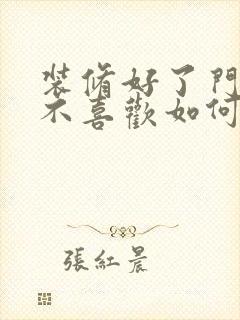 装脩好了門
不喜歡如何
張紅晨